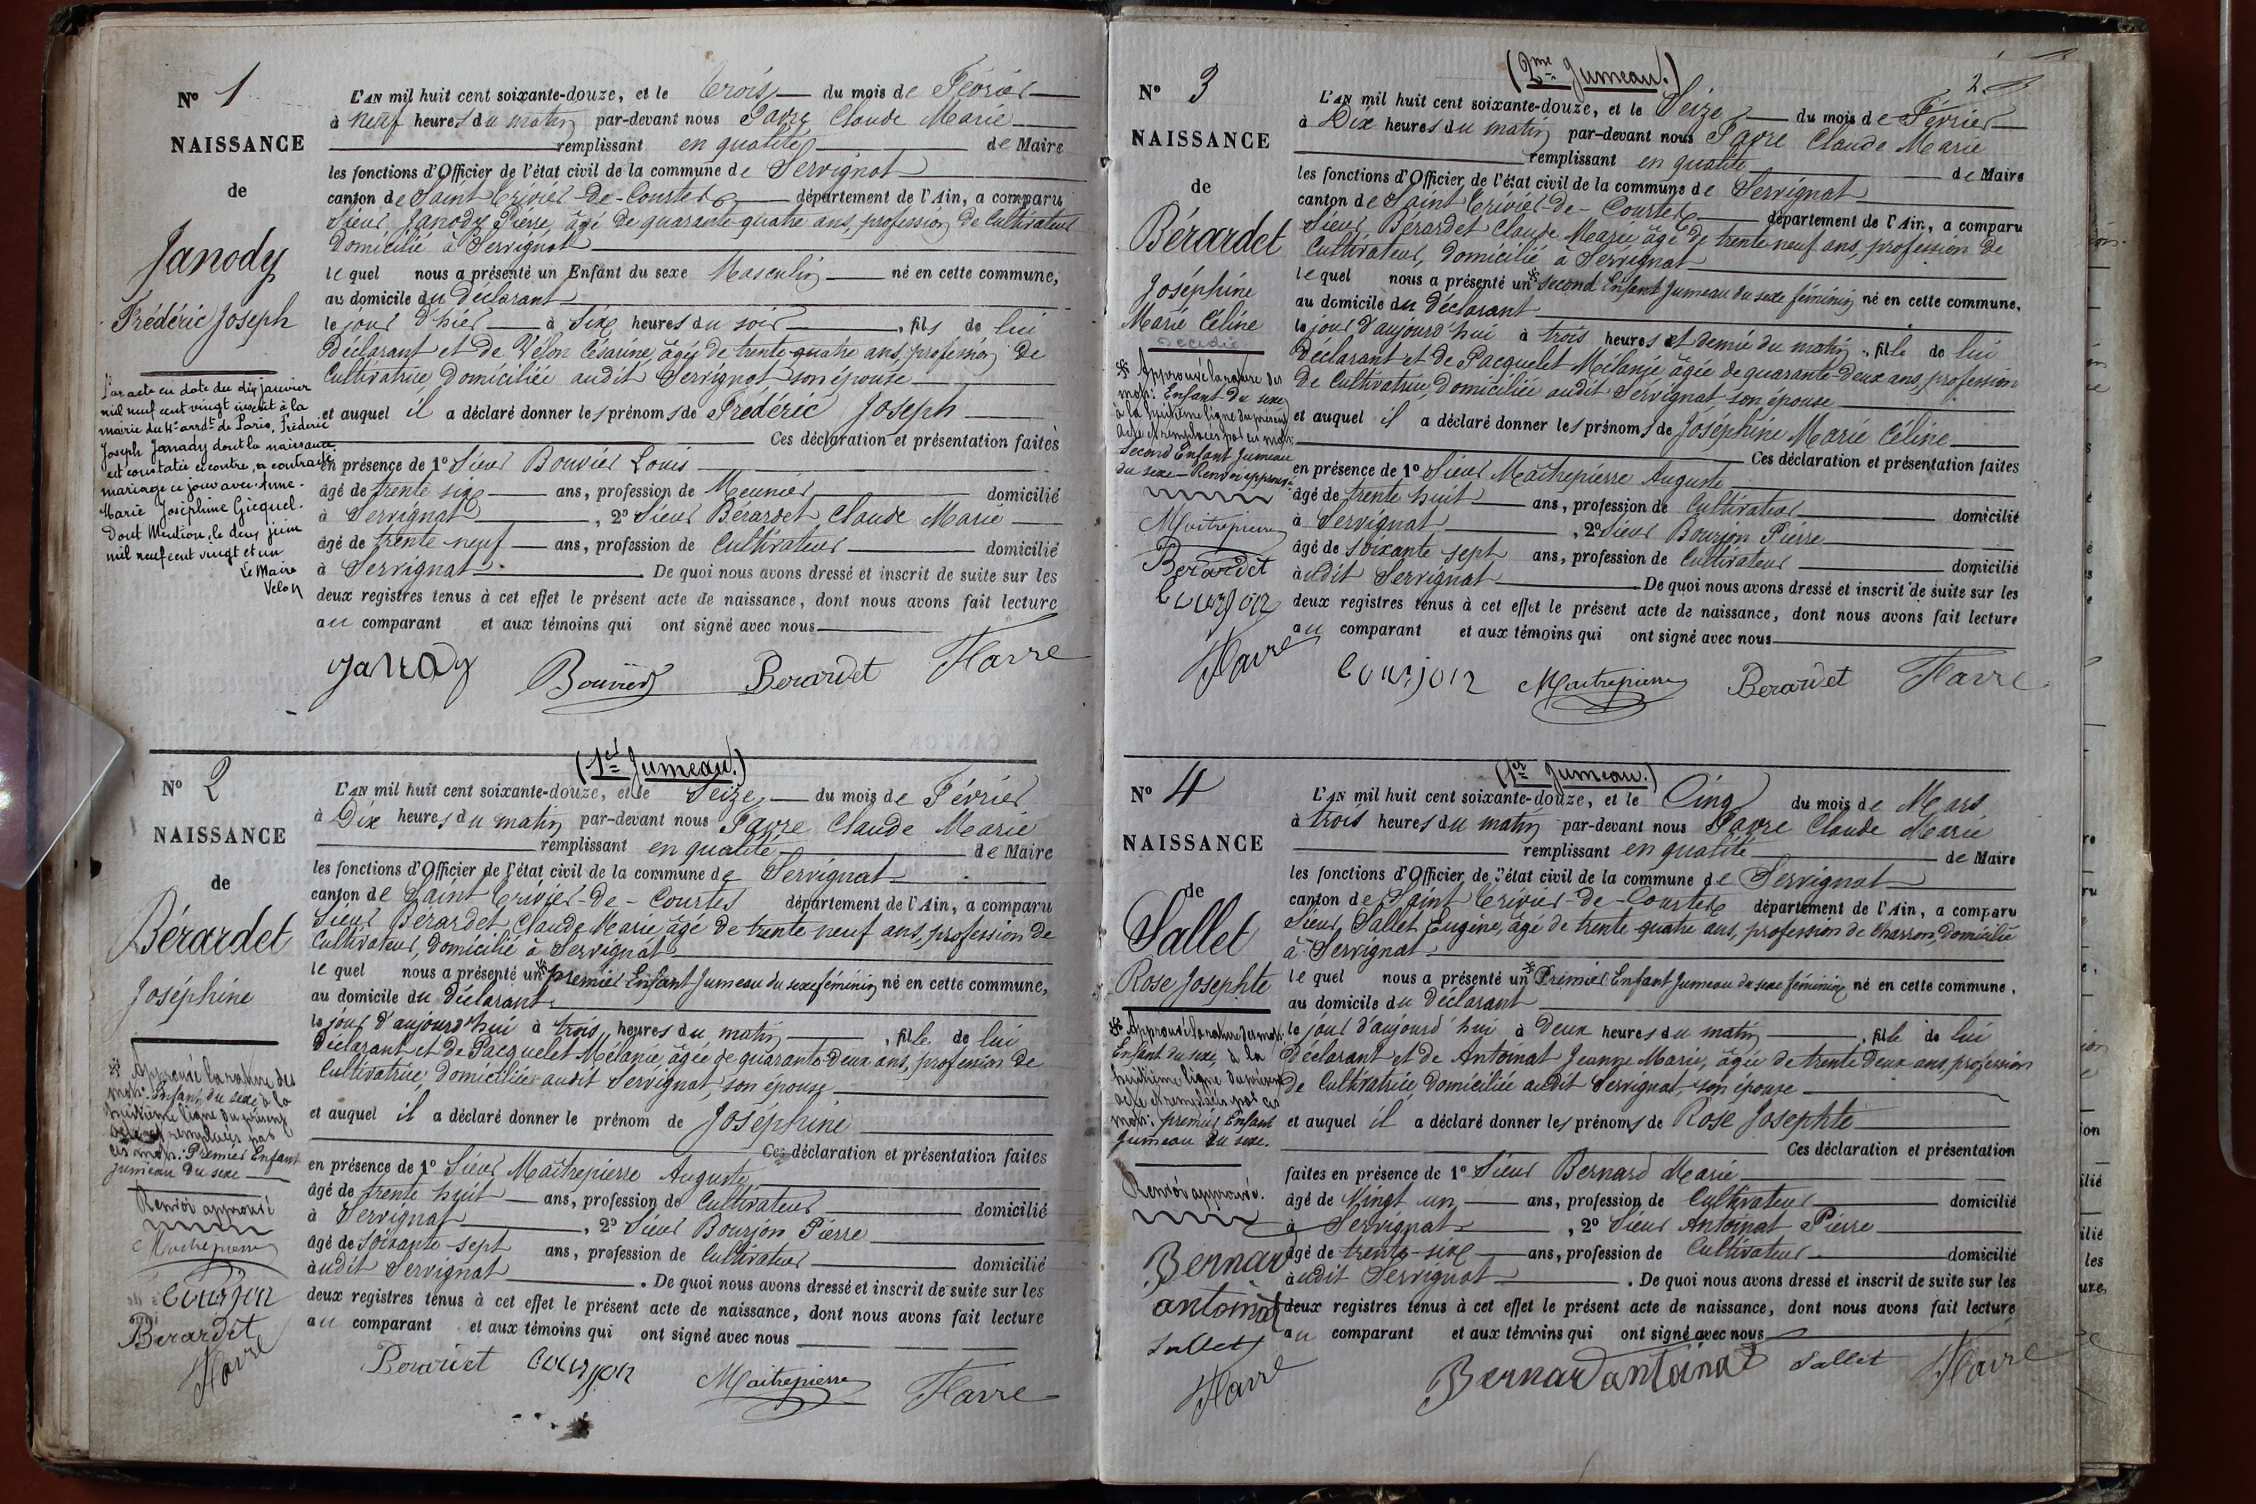 N° 1
NAISSANCE
de
Janody
Frédéric Joseph
Par acte en date du dix janvier
mil neuf cent vingt inscrit à la
mairie du 4e arrdt de Paris, Fréderic
Joseph Janady dont la naissance
est constatée ci contre, a contracté
mariage ce jour avec Anne-
Marie Joséphine Gicquel.
Dont Mention, le deux juin
mil neuf cent vingt et un
Le Maire
Velon
L'AN mil huit cent soixante-douze, et le Trois du mois de Février
à neuf heures du matin par-devant nous Favre Claude Marie
remplissant en qualité de Maire
les fonctions d'Officier de l'état civil de la commune de Servignat
canton de Saint Trivier-de-Courtes département de l'Ain, a comparu
Sieur Janody Pierre, âgé de quarante quatre ans, profession de Cultivateur
Domicilié à Servignat
lequel nous a présenté un Enfant du sexe Masculin né en cette commune,
au domicile du Déclarant
le jour d'hier à Six heures du soir, fils de lui
Déclarant et de Vélon Césarine, âgée de trente quatre ans, profession de
Cultivatrice, Domiciliée audit Servignat, son épouse
et auquel il a déclaré donner les prénoms de Frédéric Joseph
Ces déclaration et présentation faites
en présence de 1° Sieur Bouvier Louis
âgé de trente six ans, profession de Meunier domicilié
à Servignat, 2° Sieur Bérardet Claude Marie
âgé de trente neuf ans, profession de Cultivateur domicilié
à Servignat. De quoi nous avons dressé et inscrit de suite sur les
deux registres tenus à cet effet le présent acte de naissance, dont nous avons fait lecture
au comparant et aux témoins qui ont signé avec nous
Janody Bouvier Berardet Favre
N° 2
NAISSANCE
de
Bérardet
Joséphine
Approuvé la rature des
mots: Enfant du sexe à la
huitième ligne du présent
acte et remplacés par
ces mots: Premier Enfant
jumeau du sexe
Renvoi approuvé
Maitrepierre
Bourjon
Berardet
Favre
(1er Jumeau.)
L'AN mil huit cent soixante-douze, et le Seize du mois de Février
à Dix heures du matin par-devant nous Favre Claude Marie
remplissant en qualité de Maire
les fonctions d'Officier de l'état civil de la commune de Servignat
canton de Saint Trivier-de-Courtes département de l'Ain, a comparu
Sieur Bérardet Claude Marie âgé de trente neuf ans, profession de
Cultivateur, Domicilié à Servignat
lequel nous a présenté un premier Enfant Jumeau du sexe féminin né en cette commune,
au domicile du Déclarant
le jour d'aujourd'hui à trois heures du matin, fille de lui
Déclarant et de Pacquelet Mélanie, âgée de quarante-deux ans, profession de
Cultivatrice, Domiciliée audit Servignat, son épouse
et auquel il a déclaré donner le prénom de Joséphine
Ces déclaration et présentation faites
en présence de 1° Sieur Maitrepierre Auguste
âgé de trente huit ans, profession de Cultivateur domicilié
à Servignat, 2° Sieur Bourjon Pierre
âgé de soixante-sept ans, profession de Cultivateur domicilié
audit Servignat. De quoi nous avons dressé et inscrit de suite sur les
deux registres tenus à cet effet le présent acte de naissance, dont nous avons fait lecture
au comparant et aux témoins qui ont signé avec nous
Berardet Bourjon Maitrepierre Favre
2
N° 3
NAISSANCE
de
Bérardet
Joséphine
Marie Céline
décédée
Approuvé la rature des
mots: Enfant du sexe
à la huitième ligne du présent
acte et remplacés par ces mots:
Second Enfant Jumeau
du sexe - Renvoi approuvé
Maitrepierre
Berardet
Bourjon
Favre
(2me Jumeau.)
L'AN mil huit cent soixante-douze, et le Seize du mois de Février
à Dix heures du matin par-devant nous Favre Claude Marie
remplissant en qualité de Maire
les fonctions d'Officier de l'état civil de la commune de Servignat
canton de Saint Trivier-de-Courtes département de l'Ain, a comparu
Sieur Bérardet Claude Marie âgé de trente neuf ans, profession de
Cultivateur, domicilié à Servignat
lequel nous a présenté un second Enfant Jumeau du sexe féminin né en cette commune,
au domicile du Déclarant
le jour d'aujourd'hui à trois heures et demie du matin, fille de lui
Déclarant et de Pacquelet Mélanie âgée de quarante-deux ans, profession
de Cultivatrice, domiciliée audit Servignat, son épouse
et auquel il a déclaré donner les prénoms de Joséphine Marie Céline
Ces déclaration et présentation faites
en présence de 1° Sieur Maitrepierre Auguste
âgé de trente huit ans, profession de Cultivateur domicilié
à Servignat, 2° Sieur Bourjon Pierre
âgé de soixante sept ans, profession de Cultivateur domicilié
audit Servignat De quoi nous avons dressé et inscrit de suite sur les
deux registres tenus à cet effet le présent acte de naissance, dont nous avons fait lecture
au comparant et aux témoins qui ont signé avec nous
Bourjon Maitrepierre Berardet Favre
N° 4
NAISSANCE
de
Sallet
Rose Josephte
Approuvé la rature des mots:
Enfant du sexe, à la
huitième ligne du présent
acte et remplacés par ces
mots: premier Enfant
Jumeau du sexe.
Renvoi approuvé.
Bernard
antoinat
Sallet
Favre
(1er Jumeau.)
L'AN mil huit cent soixante-douze, et le Cinq du mois de Mars
à trois heures du matin par-devant nous Favre Claude Marie
remplissant en qualité de Maire
les fonctions d'Officier de l'état civil de la commune de Servignat
canton de Saint Trivier-de-Courtes département de l'Ain, a comparu
Sieur Sallet Eugène, âgé de trente quatre ans, profession de Charron, Domicilié
à Servignat
lequel nous a présenté un Premier Enfant Jumeau du sexe féminin né en cette commune,
au domicile du Déclarant
le jour d'aujourd'hui à Deux heures du matin, fille de lui
déclarant et de Antoinat Jeanne Marie, âgée de trente Deux ans, profession
de Cultivatrice, domiciliée audit Servignat, son épouse
et auquel il a déclaré donner les prénoms de Rose Josephte
Ces déclaration et présentation
faites en présence de 1° Sieur Bernard Marie
âgé de Vingt un ans, profession de Cultivateur domicilié
à Servignat, 2° Sieur Antoinat Pierre
âgé de trente-six ans, profession de Cultivateur domicilié
audit Servignat. De quoi nous avons dressé et inscrit de suite sur les
deux registres tenus à cet effet le présent acte de naissance, dont nous avons fait lecture
au comparant et aux témoins qui ont signé avec nous
Bernard antoinat Sallet Favre